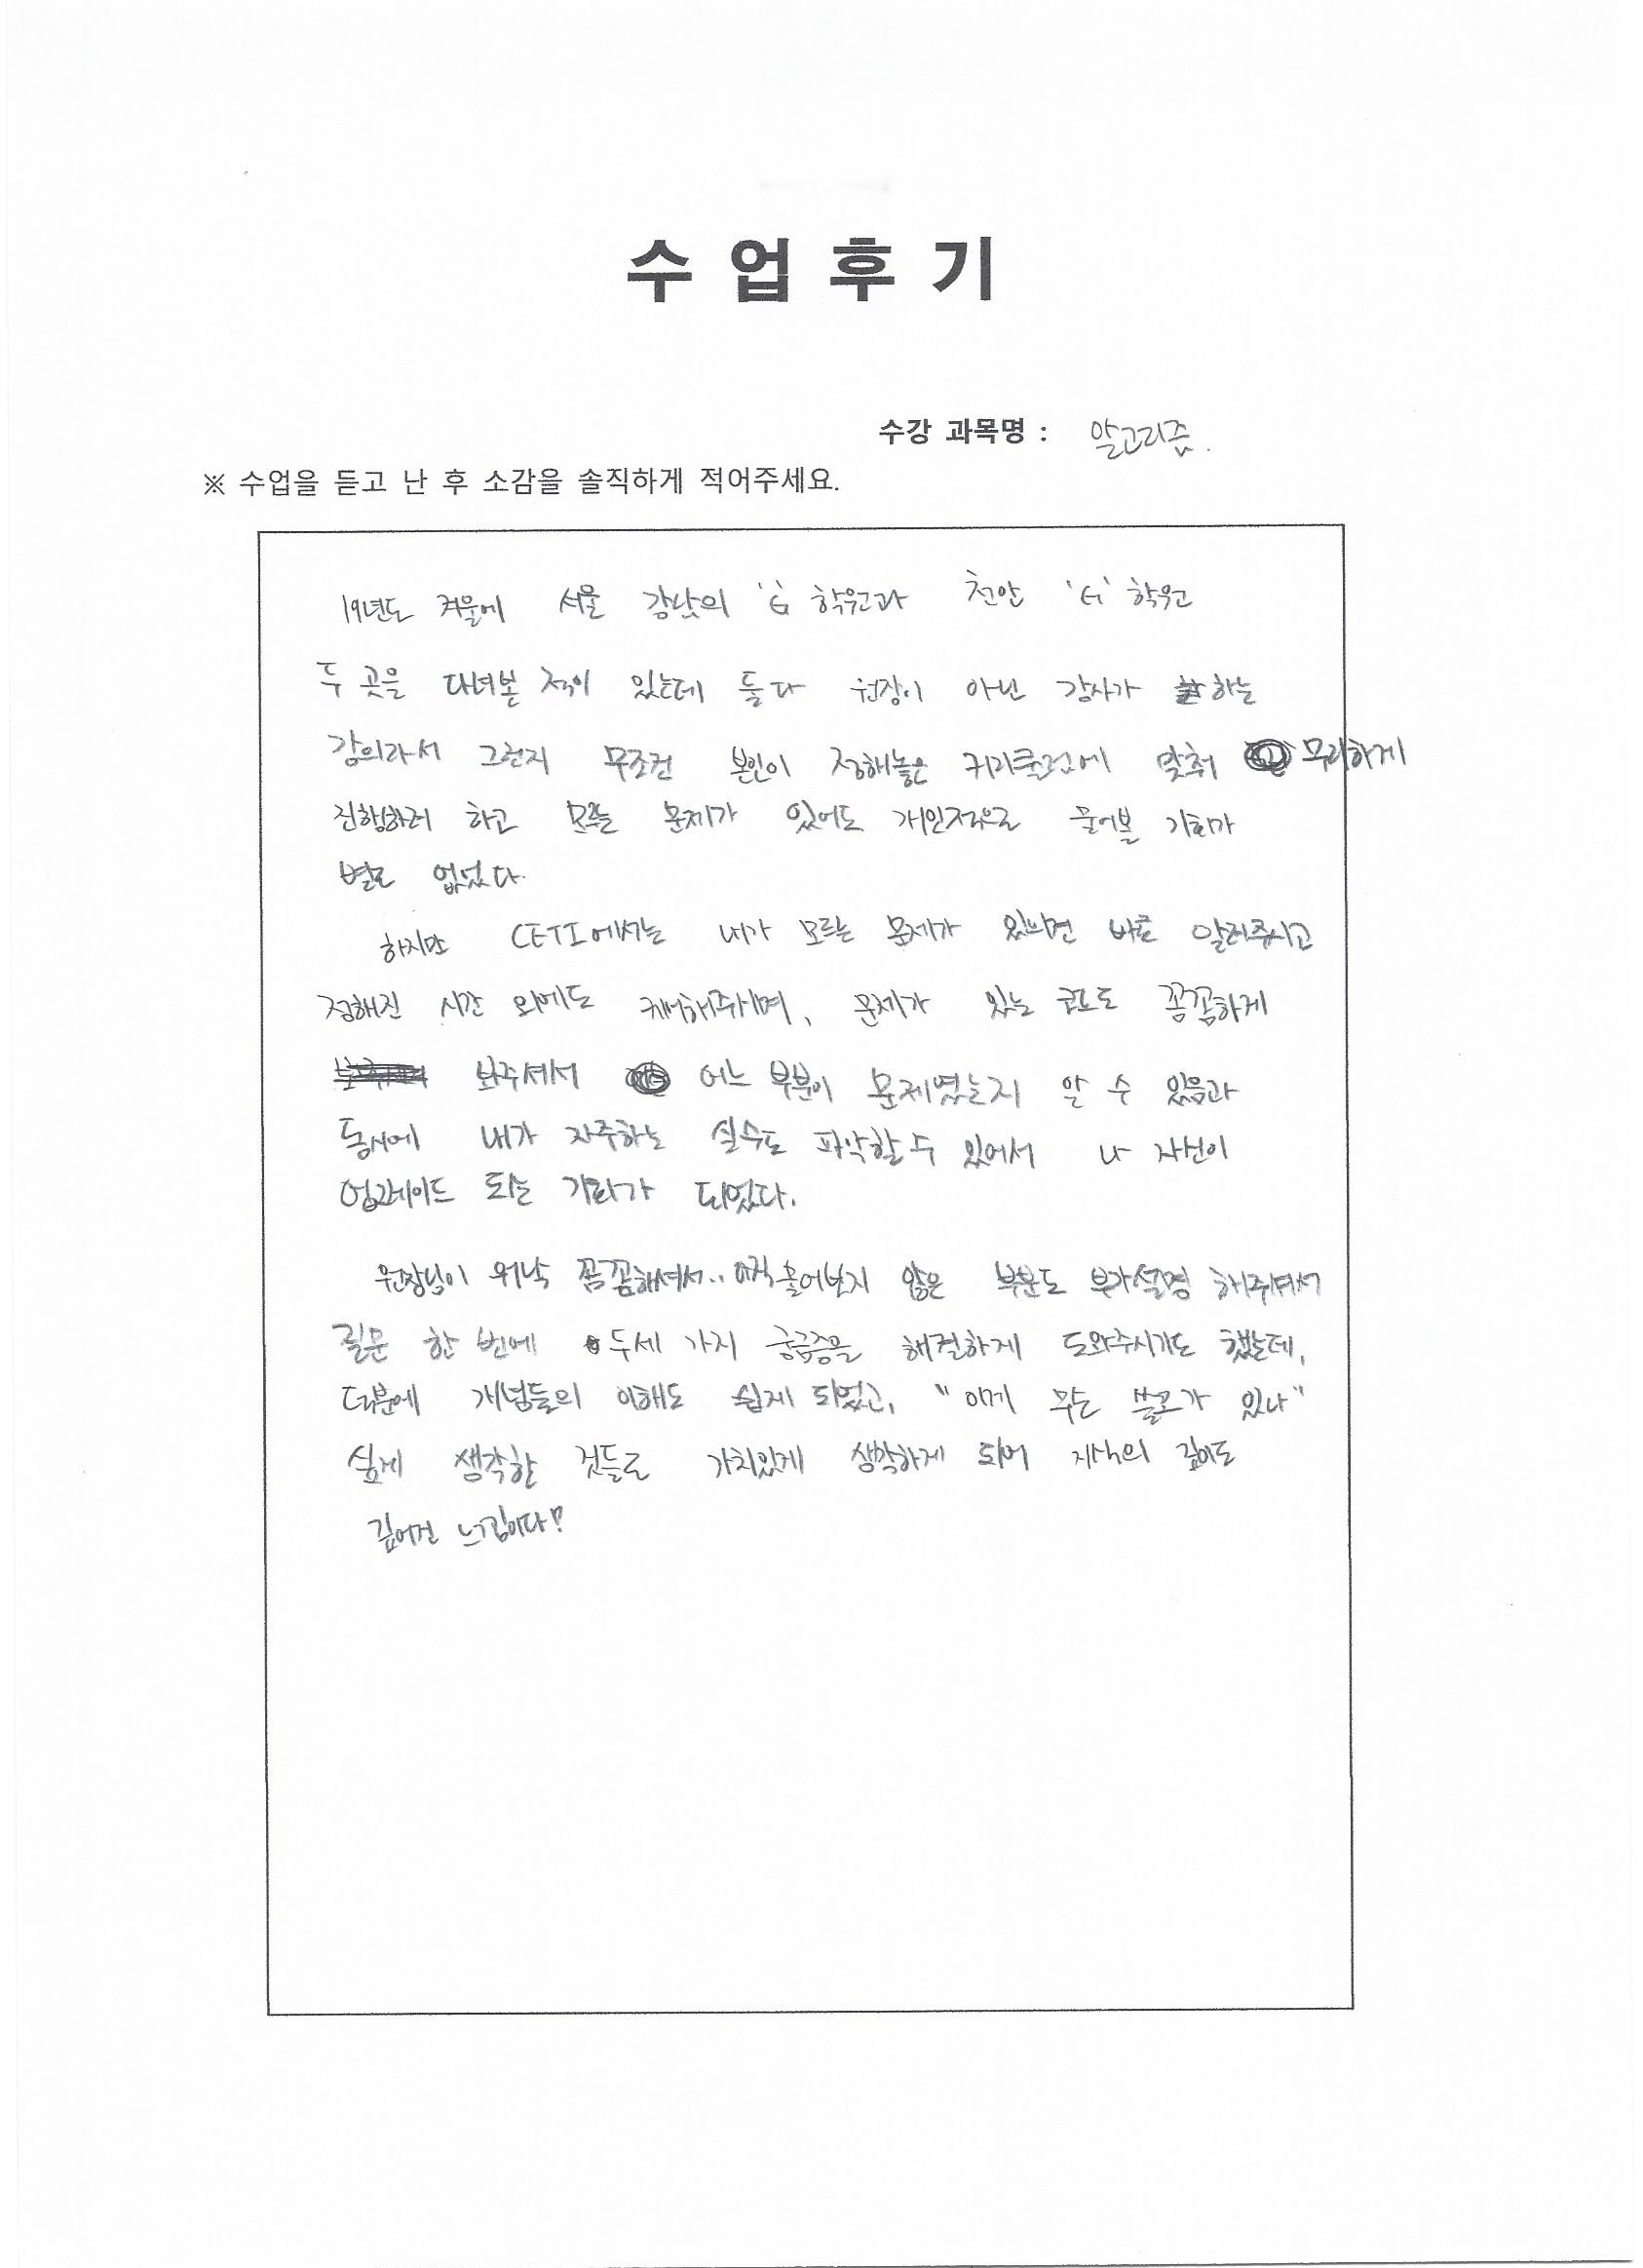 수 업 후 기
수강 과목명 : 알고리즘.
※ 수업을 듣고 난 후 소감을 솔직하게 적어주세요.
19년도 겨울에 서울 강남의 'G' 학원과 천안 'G' 학원
두 곳을 다녀본 적이 있는데 둘 다 원장이 아닌 강사가 하는
강의라서 그런지 무조건 본인이 정해놓은 커리큘럼에 맞춰 무리하게
진행하려 하고 모르는 문제가 있어도 개인적으로 물어볼 기회가
별로 없었다.
하지만 CETI에서는 내가 모르는 문제가 있으면 바로 알려주시고
정해진 시간 외에도 케어해주시며, 문제가 있는 코드도 꼼꼼하게
봐주셔서 어느 부분이 문제였는지 알 수 있음과
동시에 내가 자주하는 실수도 파악할 수 있어서 나 자신이
업그레이드 되는 기회가 되었다.
원장님이 워낙 꼼꼼하셔서.. 아직 물어보지 않은 부분도 부가설명 해주셔서
질문 한 번에 두세 가지 궁금증을 해결하게 도와주시기도 했는데,
덕분에 개념들의 이해도 쉽게 되었고, "이게 무슨 쓸모가 있나"
싶게 생각한 것들도 가치있게 생각하게 되어 지식의 깊이도
깊어진 느낌이다!